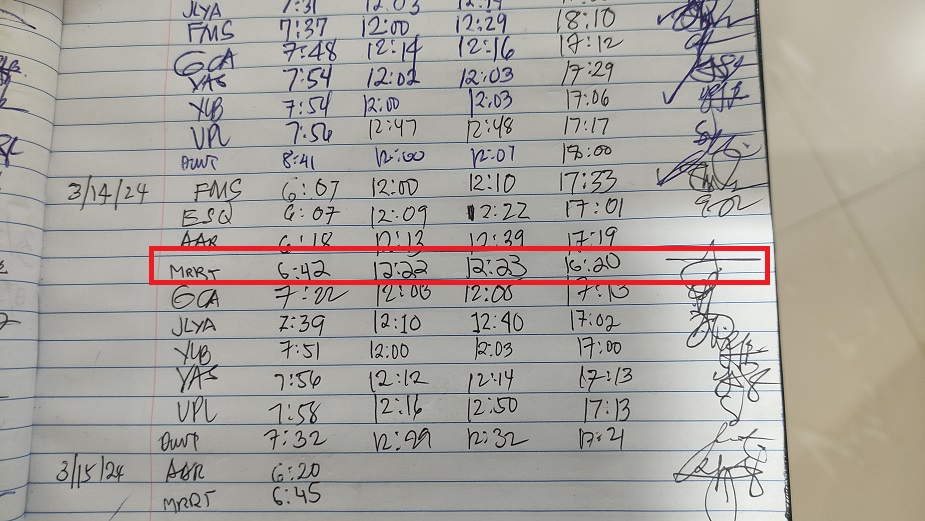 JLYA 7:31 12:03
FMS 7:37 12:00 12:29 18:10
GCA 7:48 12:14 12:16 17:12
YAS 7:54 12:02 12:03 17:29
YLB 7:54 12:00 12:03 17:06
VPL 7:56 12:47 12:48 17:17
8:41 12:00 12:07 18:00
3/14/24 FMS 6:07 12:00 12:10 17:33
ESQ 6:07 12:09 12:22 17:01
AAR 6:18 12:13 12:39 17:19
MRRT 6:42 12:22 12:23 16:20
GCA 7:22 12:03 12:08 17:13
JLYA 7:39 12:10 12:40 17:02
YLB 7:51 12:00 12:03 17:00
YAS 7:56 12:12 12:14 17:13
VPL 7:58 12:16 12:50 17:13
7:32 12:32 17:21
3/15/24 AAR 6:20
MRRT 6:45